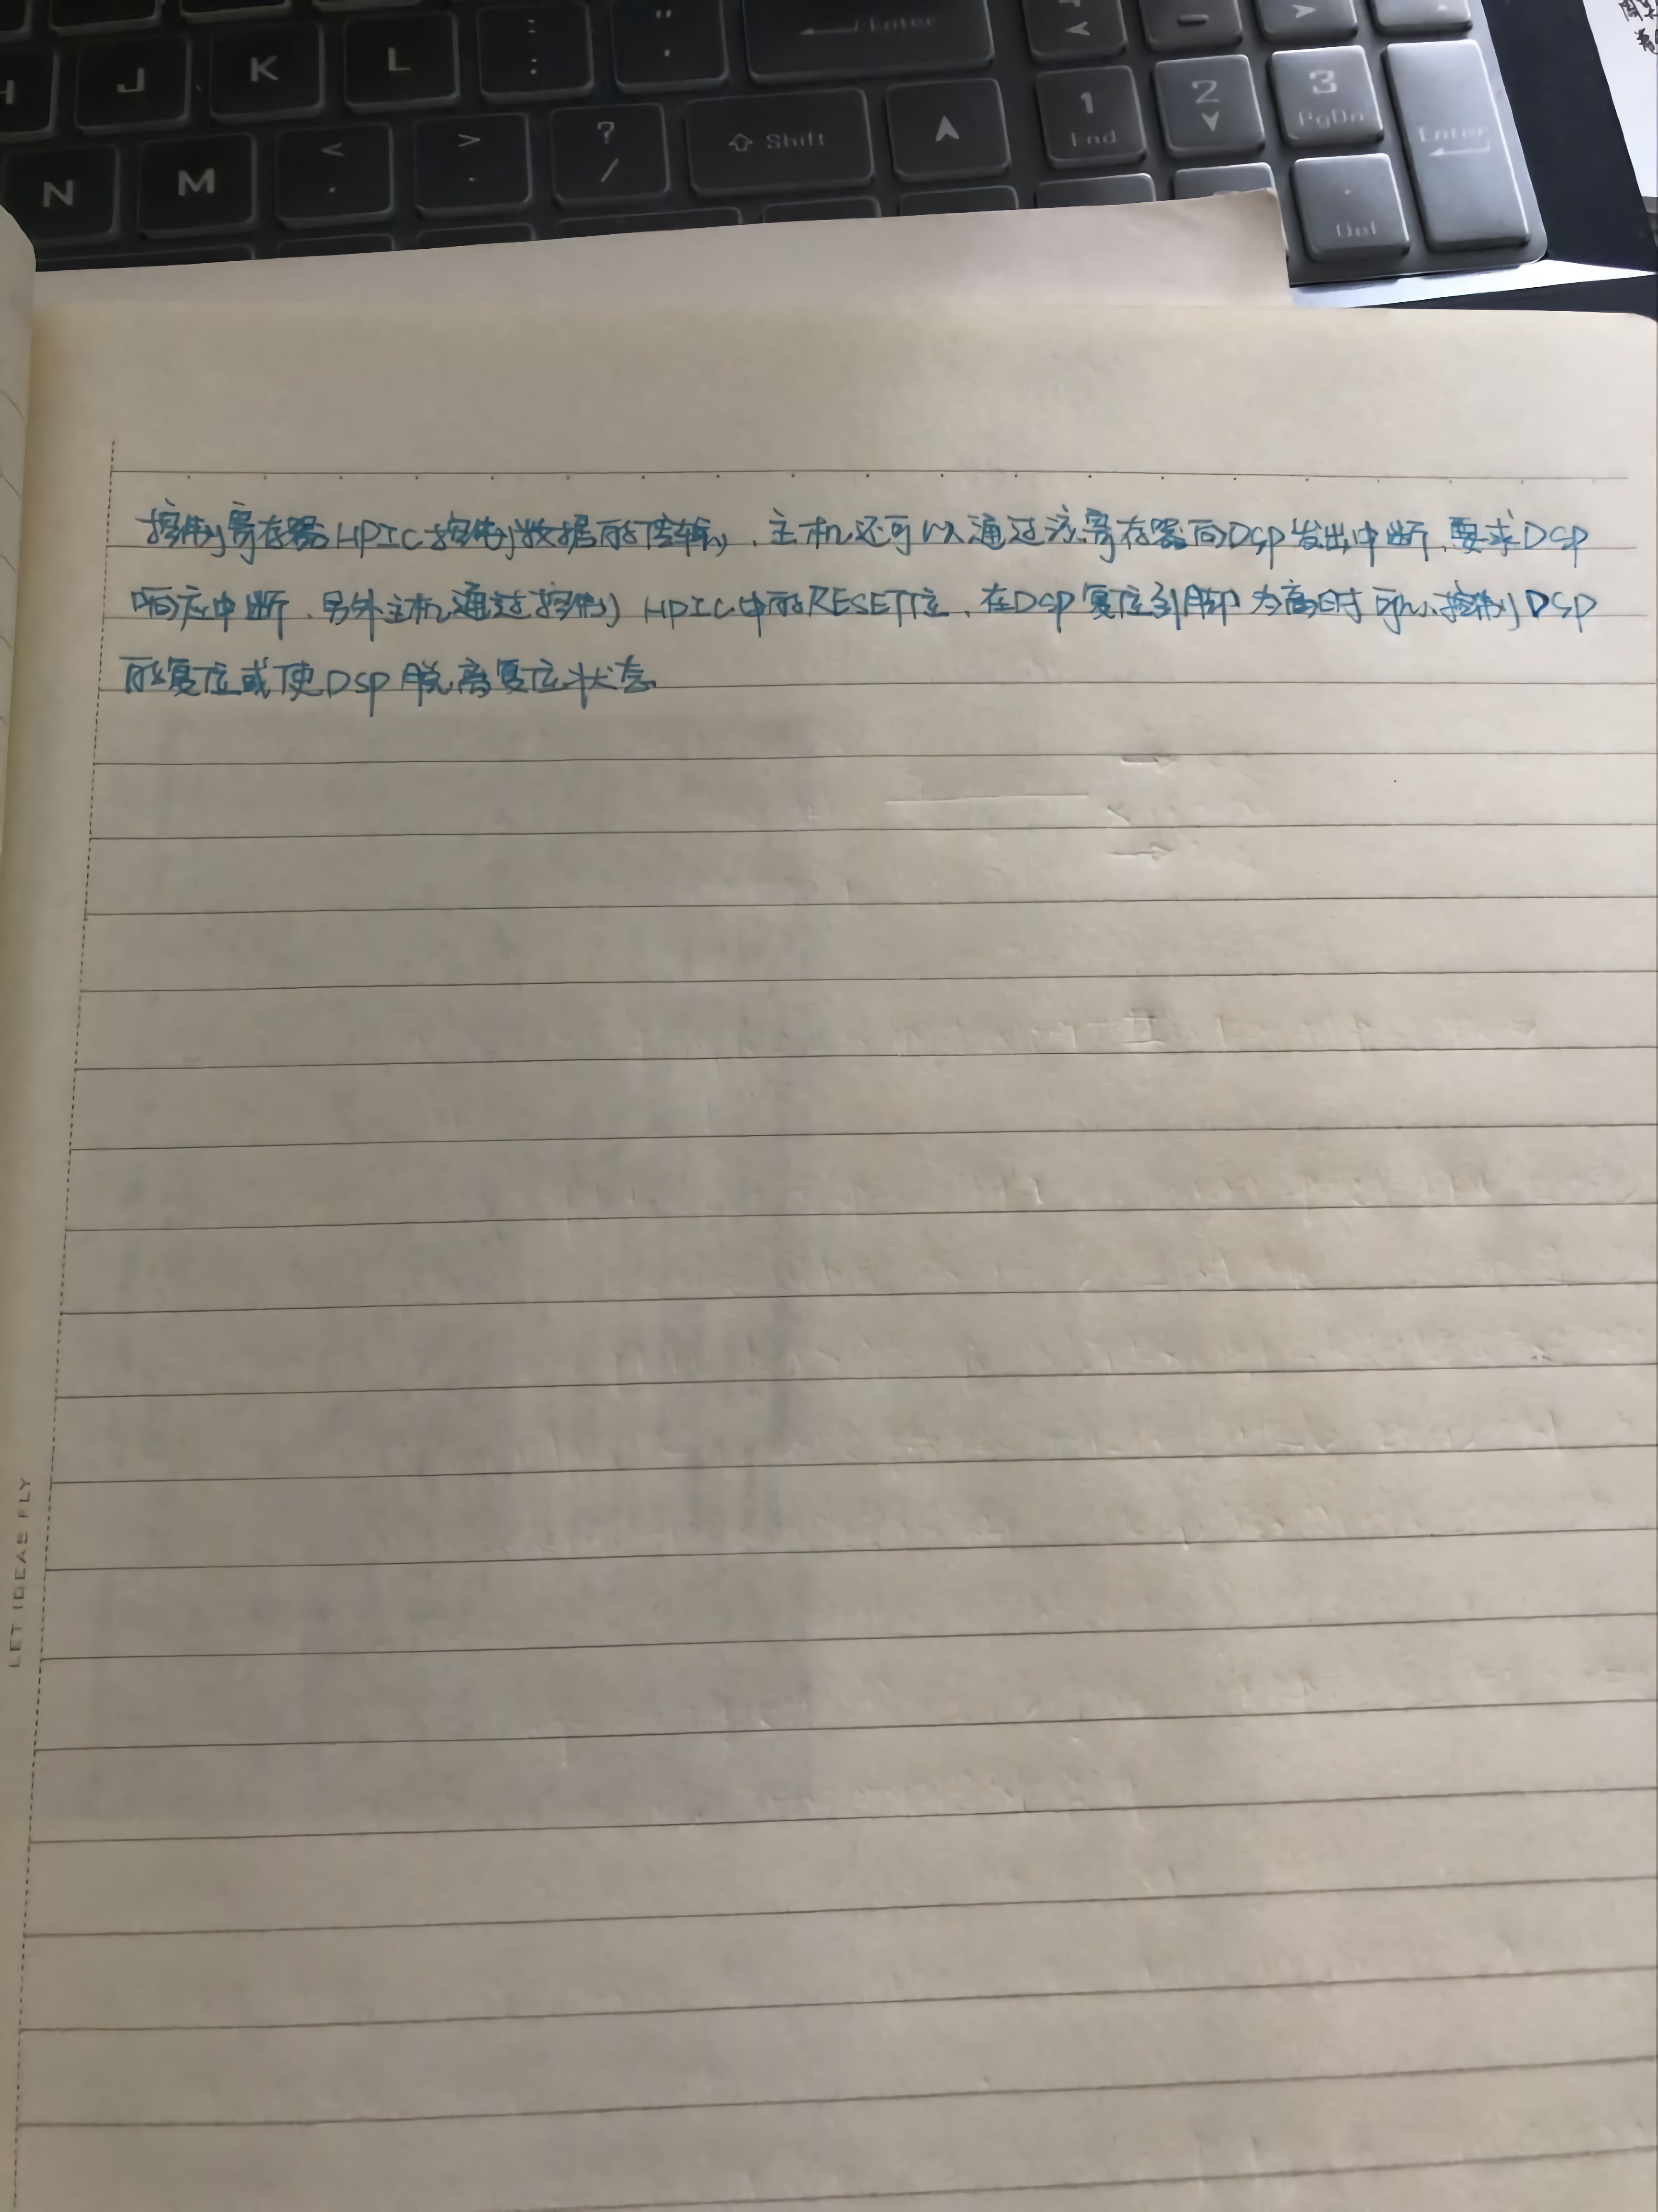 J K L : ; " ' Enter
N M < , > . ? / Shift 1 End 2 3 PgDn Enter
Del
控制寄存器HPIC控制数据的传输，主机还可以通过该寄存器向DSP发出中断，要求DSP
响应中断，另外主机通过控制HPIC中的RESET位，在DSP复位引脚为高时可以控制DSP
的复位或使DSP脱离复位状态
LET IDEAS FLY